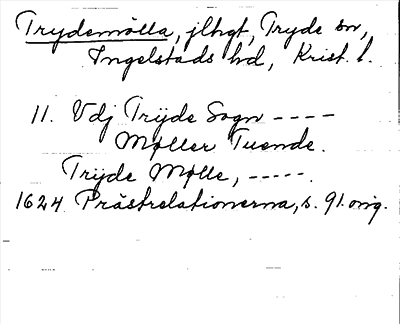 Trydemölla, jlhgt, Tryde sn,
Ingelstads hd, Krist. l.
11. Vdj Trÿde Sogn ----
Møller Tuende.
Trÿde Mølle, -----.
1624 Prästrelationerna, s. 91. orig.